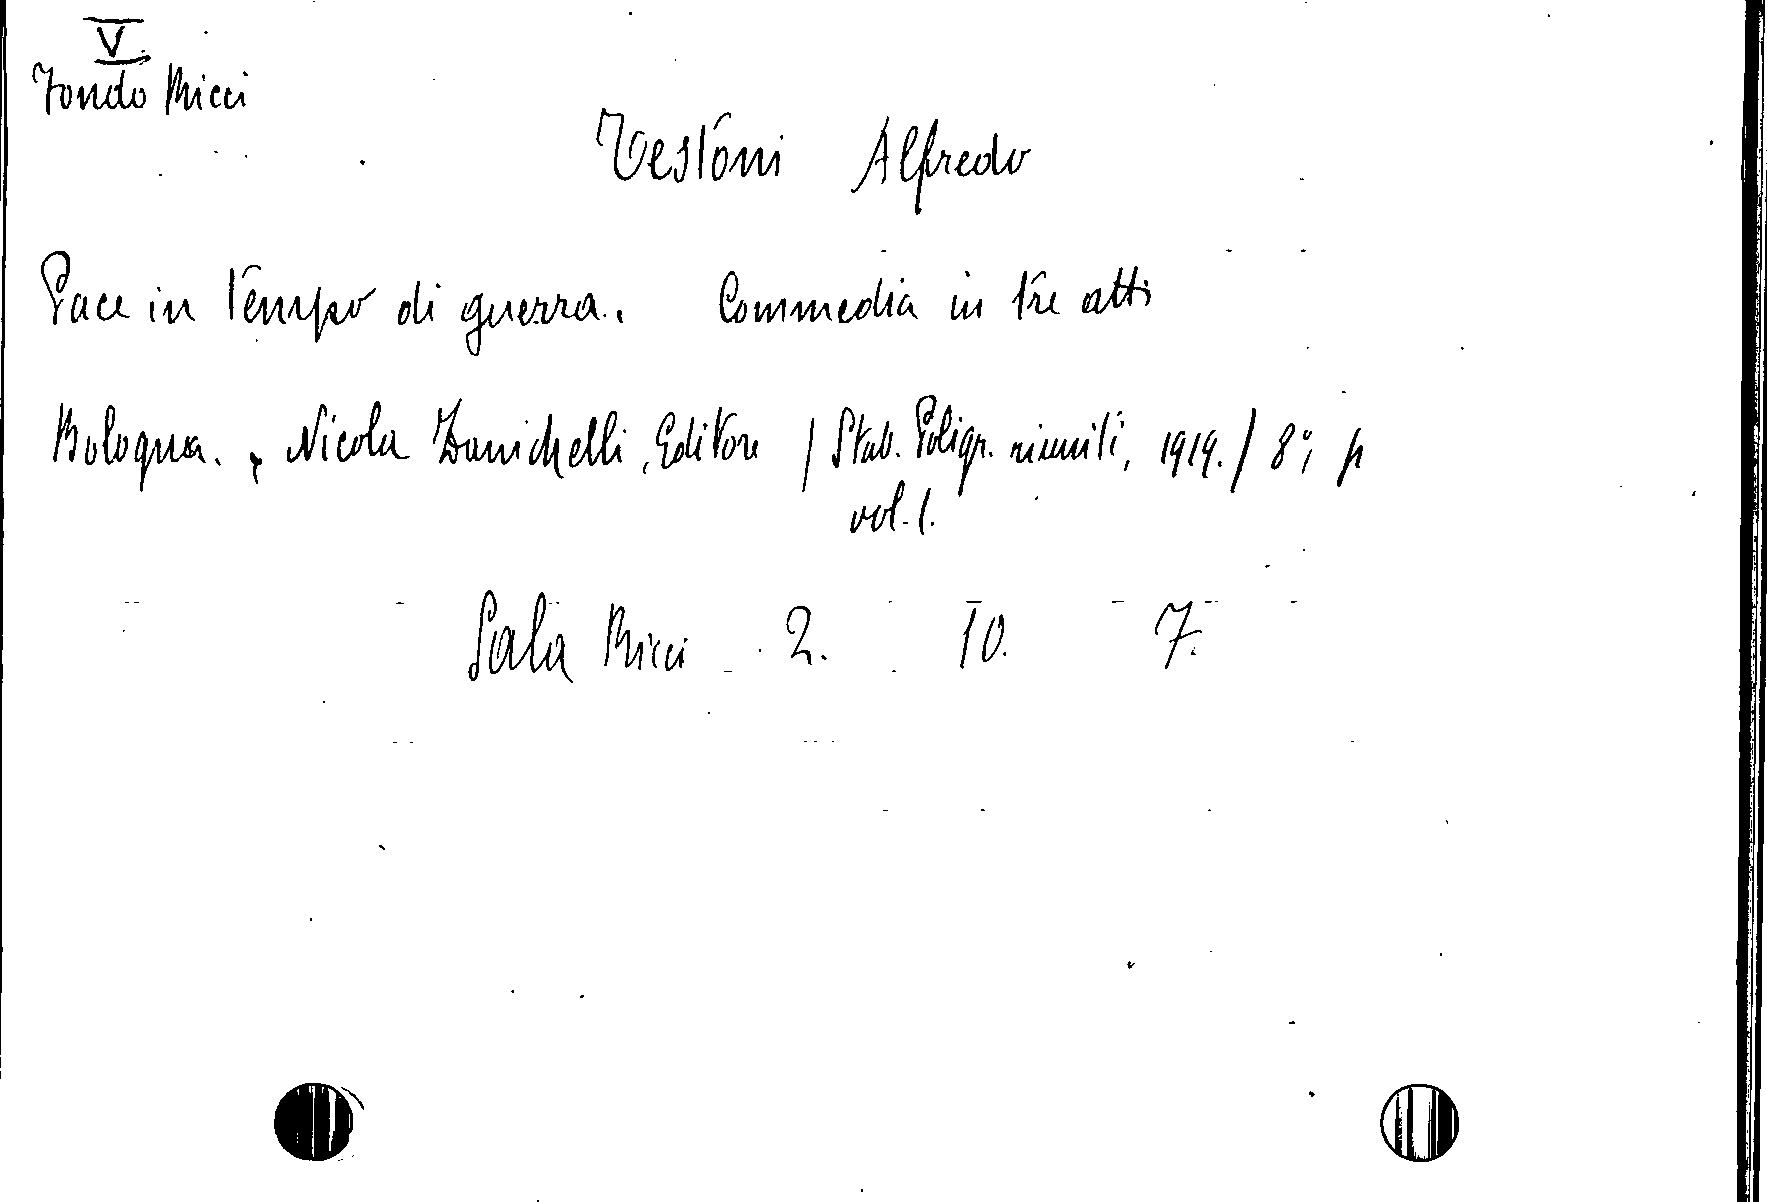 V
Fondo Ricci
Testoni Alfredo
Pace in tempo di guerra. Commedia in tre atti
Bologna. Nicola Zanichelli, Editore / Stab. Poligr. riuniti, 1919. / 8°, p
vol. 1.
Sala Ricci 2. 10. 7.